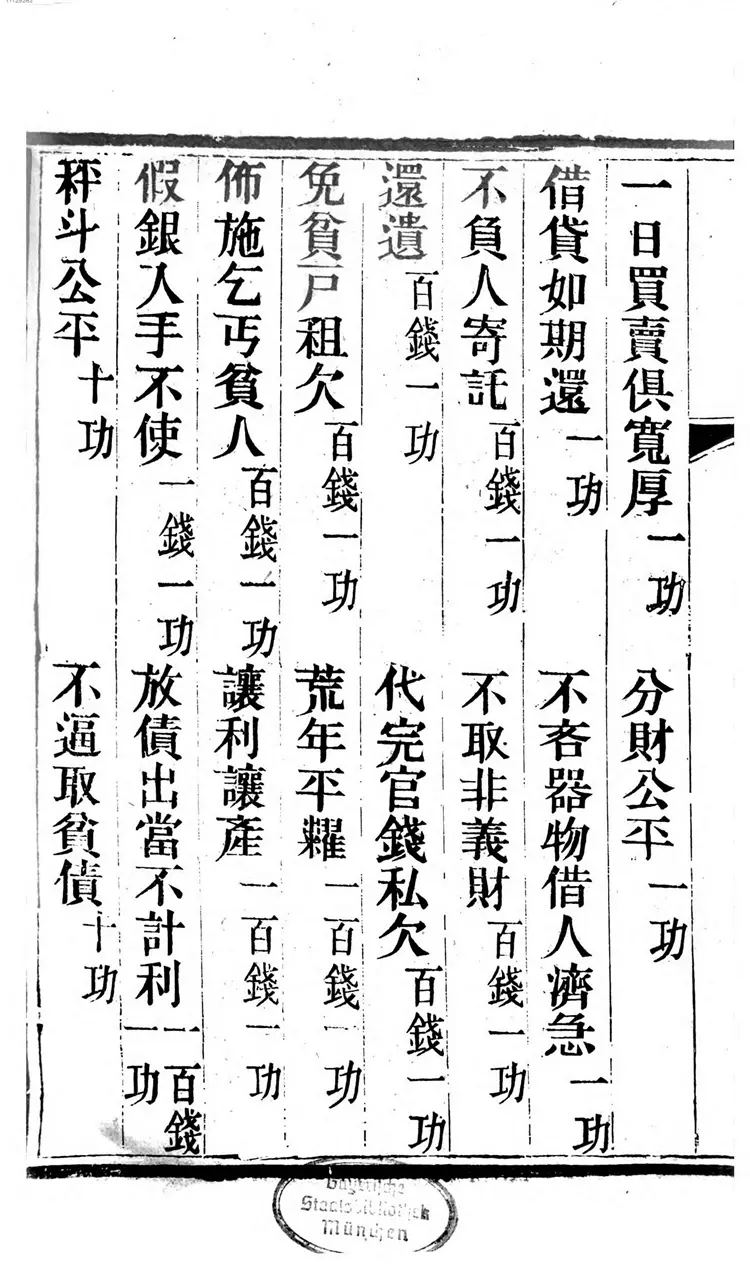 一日買賣俱寬厚 一功 分財公平 一功
借貸如期還 一功 不吝器物借人濟急 一功
不負人寄託 百錢一功 不取非義財 百錢一功
還遺 百錢一功 代完官錢私欠 百錢一功
免貧戶租欠 百錢一功 荒年平糶 一百錢一功
佈施乞丐貧人 百錢一功 讓利讓產 一百錢一功
假銀入手不使 一錢一功 放債出當不計利 一百錢一功
秤斗公平 十功 不逼取貧債 十功
Bayerische
Staatsbibliothek
München